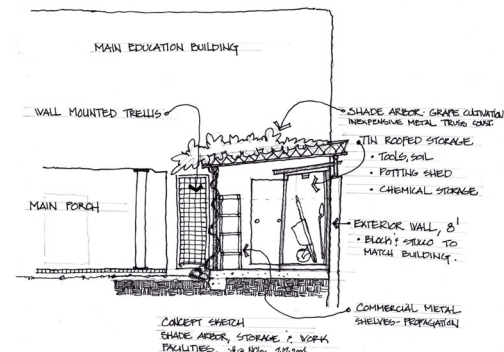 MAIN EDUCATION BUILDING
WALL MOUNTED TRELLIS
SHADE ARBOR - GRAPE CULTIVATION
INEXPENSIVE METAL TRUSS CONST.
TIN ROOFED STORAGE
• TOOLS, SOIL
• POTTING SHED
• CHEMICAL STORAGE
MAIN PORCH
EXTERIOR WALL, 8'
• BLOCK & STUCCO TO
MATCH BUILDING.
COMMERCIAL METAL
SHELVES - PROPAGATION
CONCEPT SKETCH
SHADE ARBOR, STORAGE & WORK
FACILITIES.